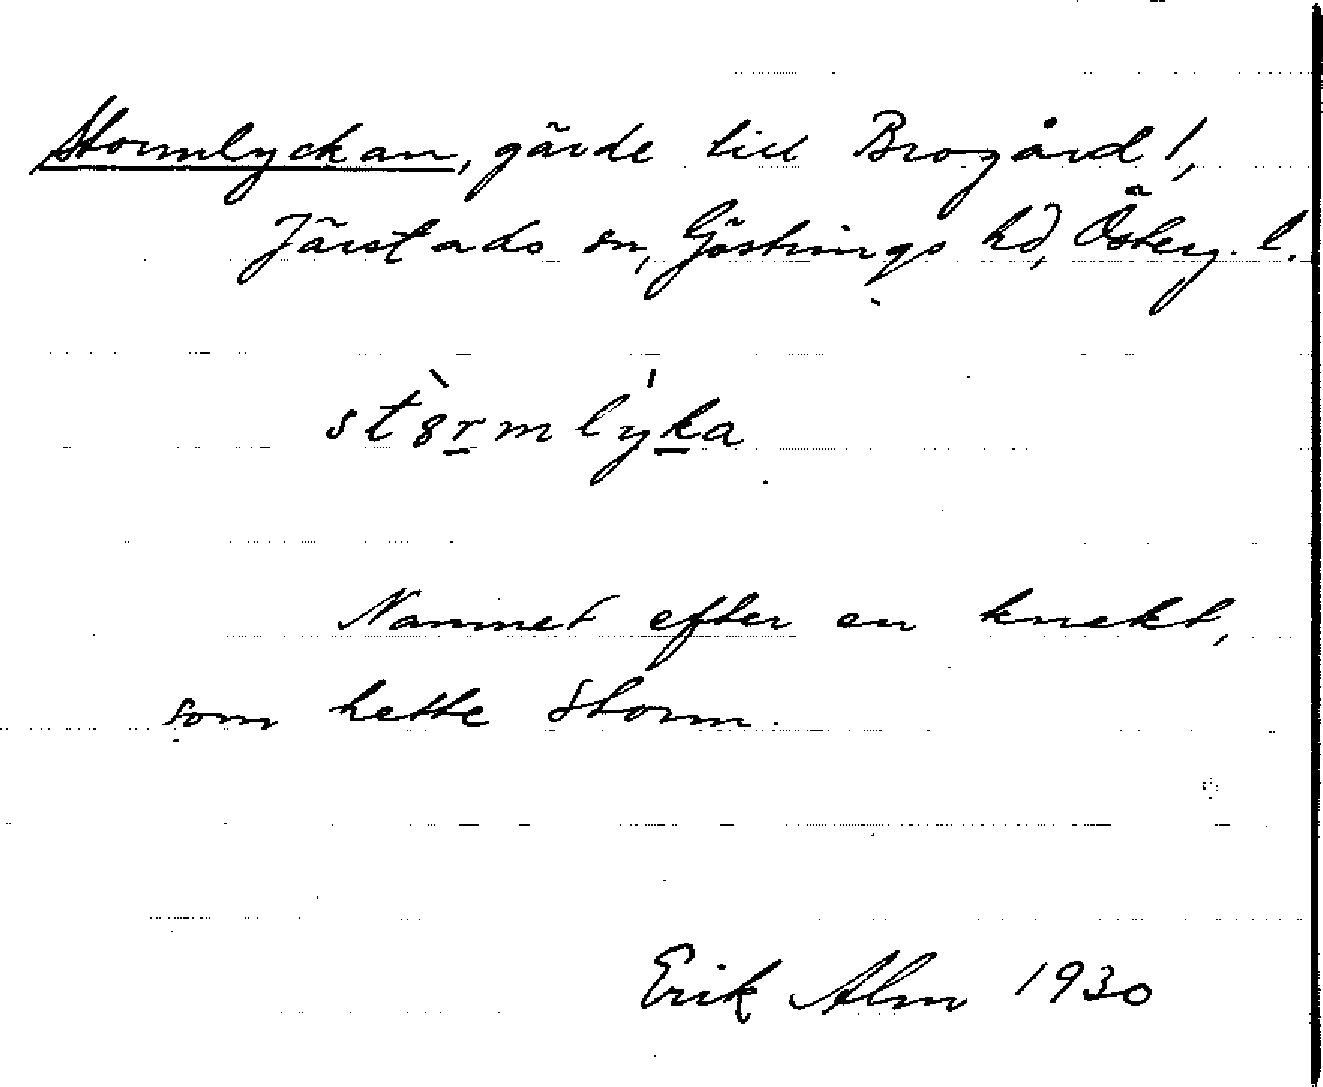 Stormlyckan, gärde till Brogård 1,
Järstads sn, Göstrings hd, Österg. l.
stòrmlýka
Namnet efter en knekt,
som hette Storm.
Erik Alm 1930